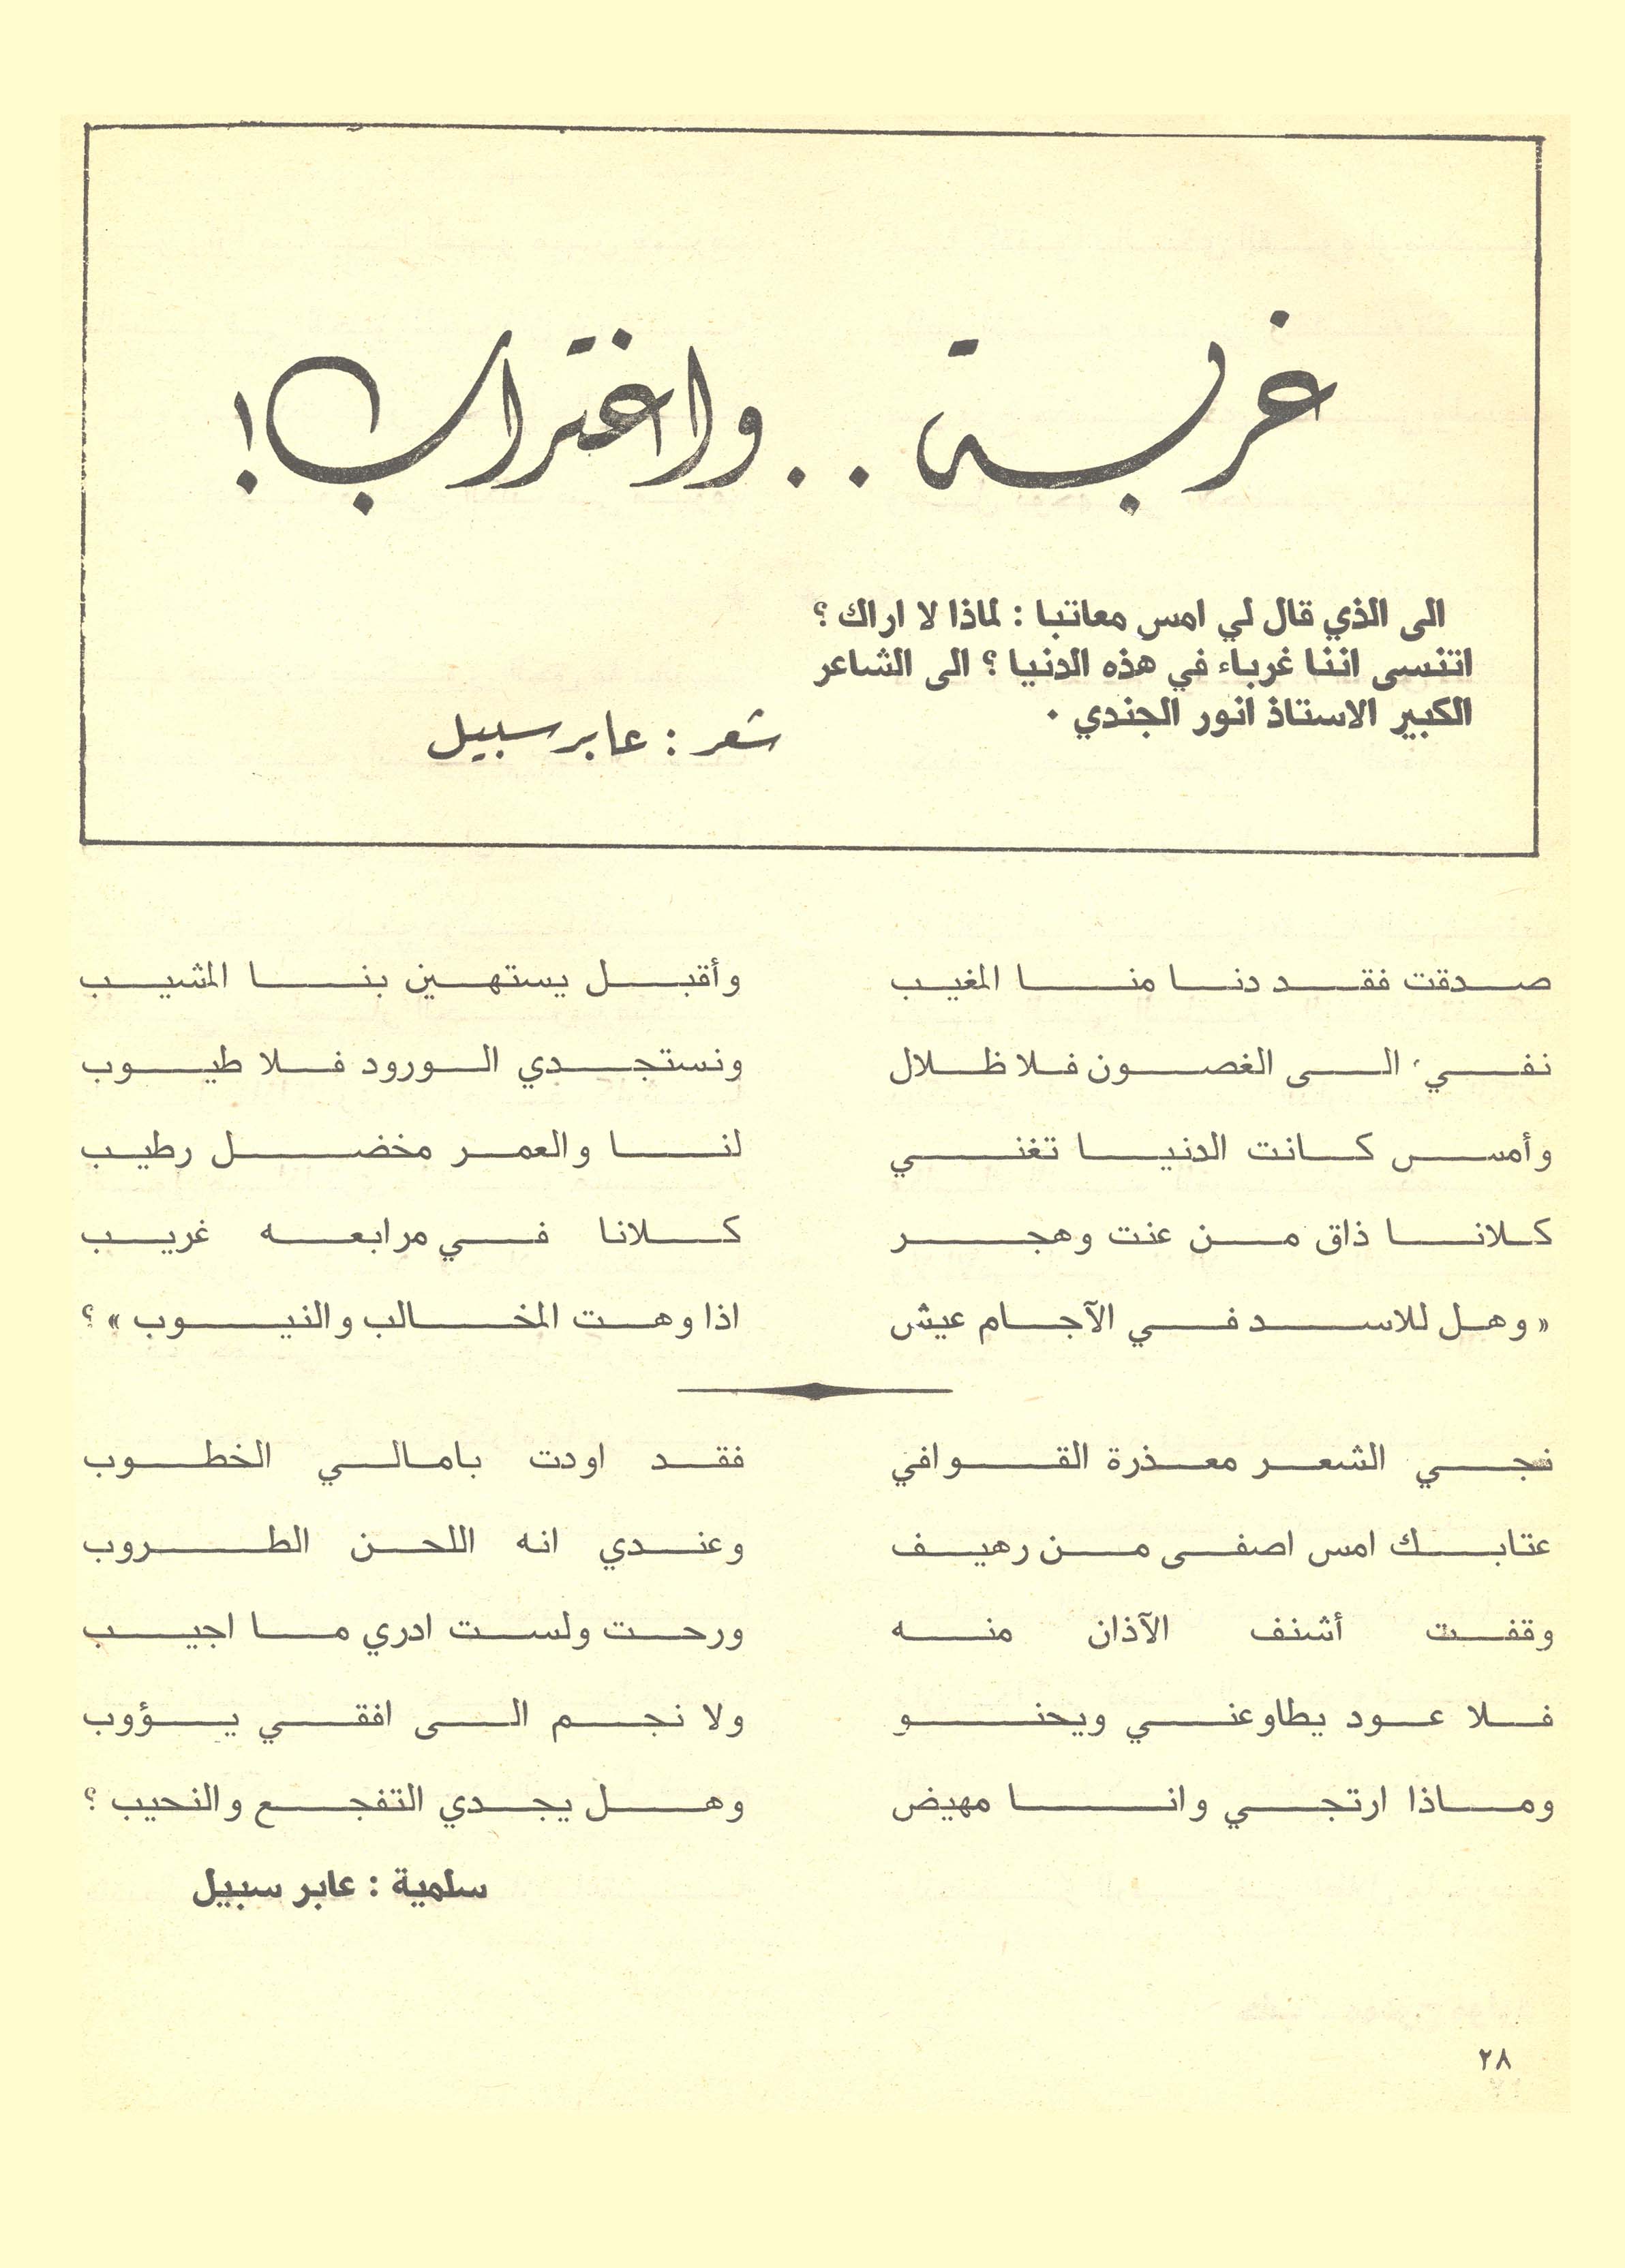 غربة . . واغتراب !
الى الذي قال لي امس معاتبا : لماذا لا اراك ؟
اتنسى اننا غرباء في هذه الدنيا ؟ الى الشاعر
الكبير الاستاذ انور الجندي ٠
شعر : عابر سبيل
صدقت فقد دنا منا المغيب وأقبل يستهين بنا المشيب
نفيء الى الغصون فلا ظلال ونستجدي الورود فلا طيوب
وأمس كانت الدنيا تغني لنا والعمر مخضل رطيب
كلانا ذاق من عنت وهجر كلانا في مرابعه غريب
« وهل للاسد في الآجام عيش اذا وهت المخالب والنيوب » ؟
نجي الشعر معذرة القوافي فقد اودت بامالي الخطوب
عتابك امس اصفى من رهيف وعندي انه اللحن الطروب
وقفت أشنف الآذان منه ورحت ولست ادري ما اجيب
فلا عود يطاوعني ويحنو ولا نجم الى افقي يؤوب
وماذا ارتجي وانا مهيض وهل يجدي التفجع والنحيب ؟
سلمية : عابر سبيل
٢٨